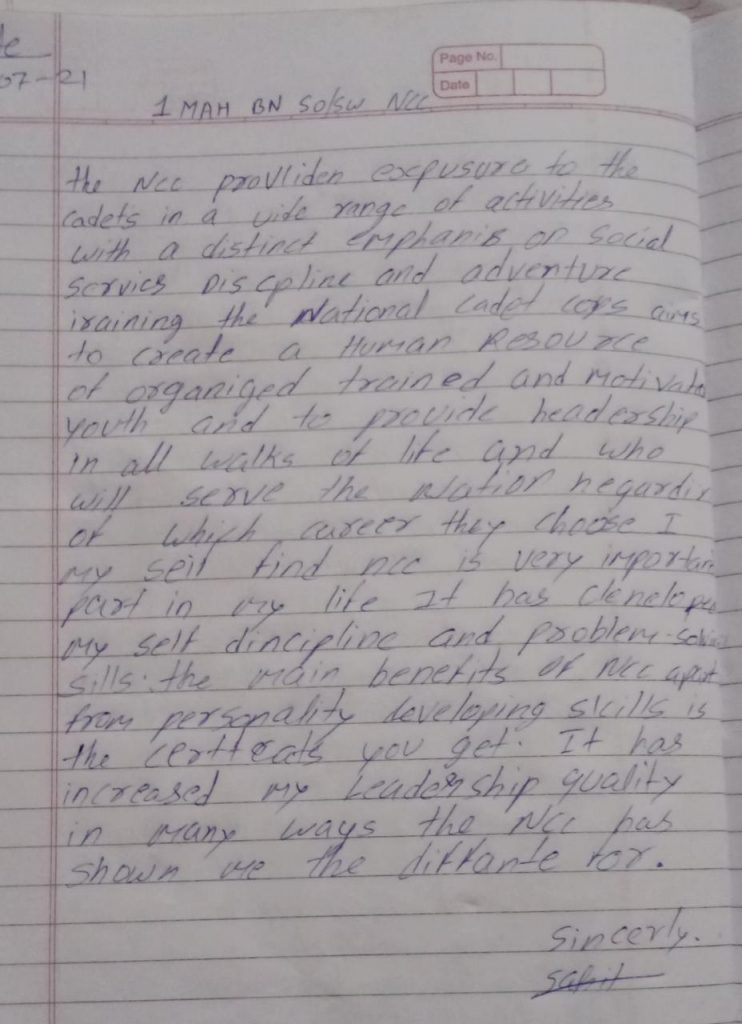 te
07-21
Page No.
Date
1 MAH BN SO/SW NCC
the NCC provliden exepusure to the
cadets in a vide range of activities
with a distinct emphanis on Social
Servics Discpline and adventure
iraining the National cadet cops aims
to create a Human Resource
of organiged trained and Motivate
youth and to provide headership
in all walks of life and who
will serve the Nation negardin
of which career they choose I
my seil find ncc is very important
part in my life It has clenelope
my self dincipline and problem-solvi
sills. the main benefits of NCC apart
from personality developing skills is
the certtecats you get. It has
increased my Leadership quality
in many ways the NCC has
shown me the for.
Sincerly.